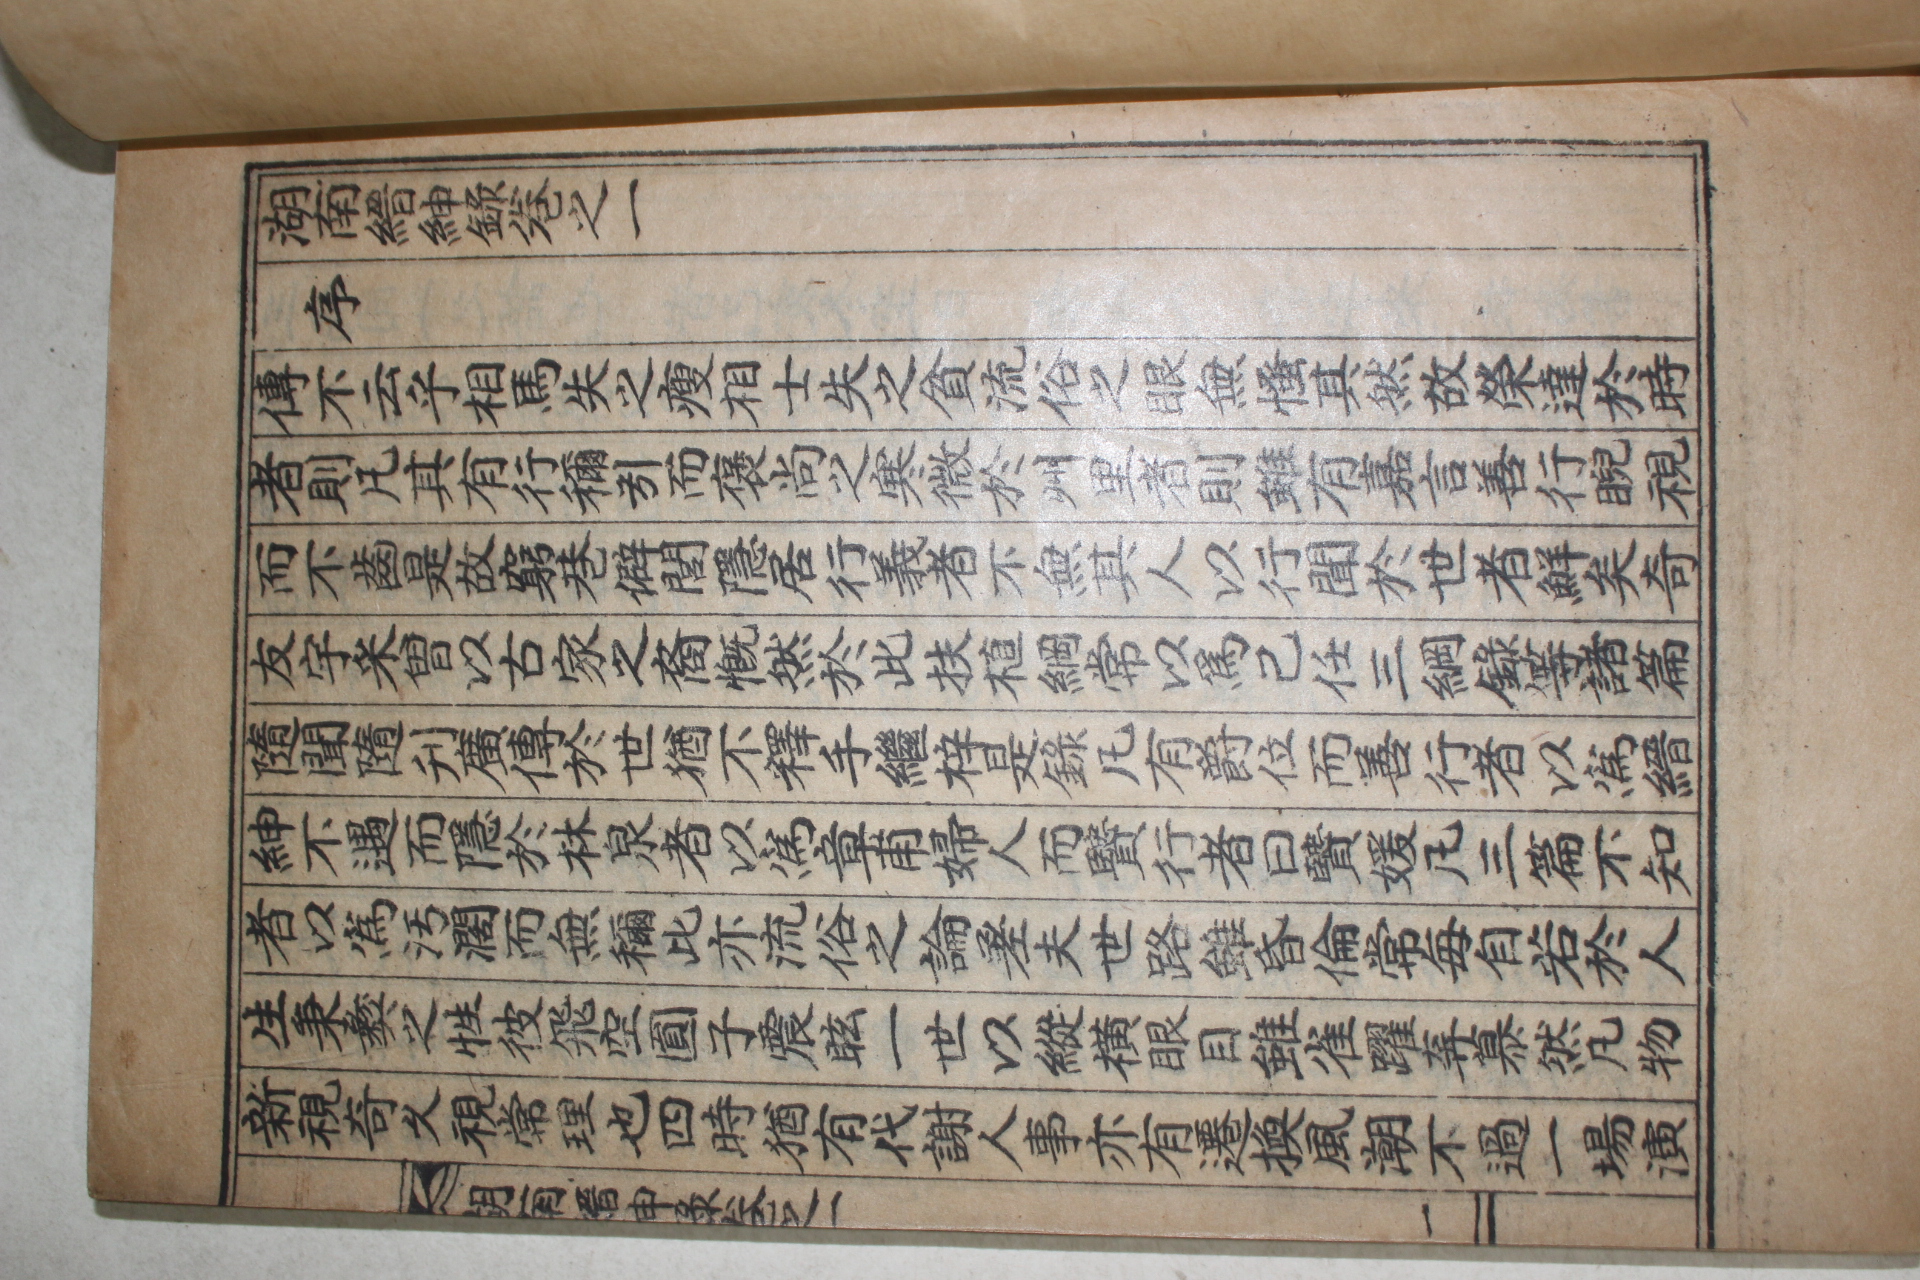 湖南縉紳錄卷之一
序
傳不云乎相馬失之瘦相士失之貧流俗之眼無怪其然故榮達於時
者則凡其有行稱引而褒尚之寒微於州里者則雖有嘉言善行睨視
而不齒是故窮巷僻閭隱居行義者不無其人以行聞於世者鮮矣奇
友宇榮曾以古家之裔慨然於此扶植綱常以爲己任三綱錄等諸篇
隨聞隨刋廣傳於世猶不釋手繼梓是錄凡有爵位而善行者以爲縉
紳不遇而隱於林泉者以爲章甫婦人而賢行者曰賢媛凡三篇不知
者以爲汚濶而無稱此亦流俗之論塗夫世路雖昏倫常每自若於人
生秉彜之性彼飛空圓子震眩一世以縱橫眼目雖雀躍莽慕然凡物
新視奇久視常理也四時猶有代謝人事亦有遷換風潮不過一場演
湖南縉紳錄卷之一
一